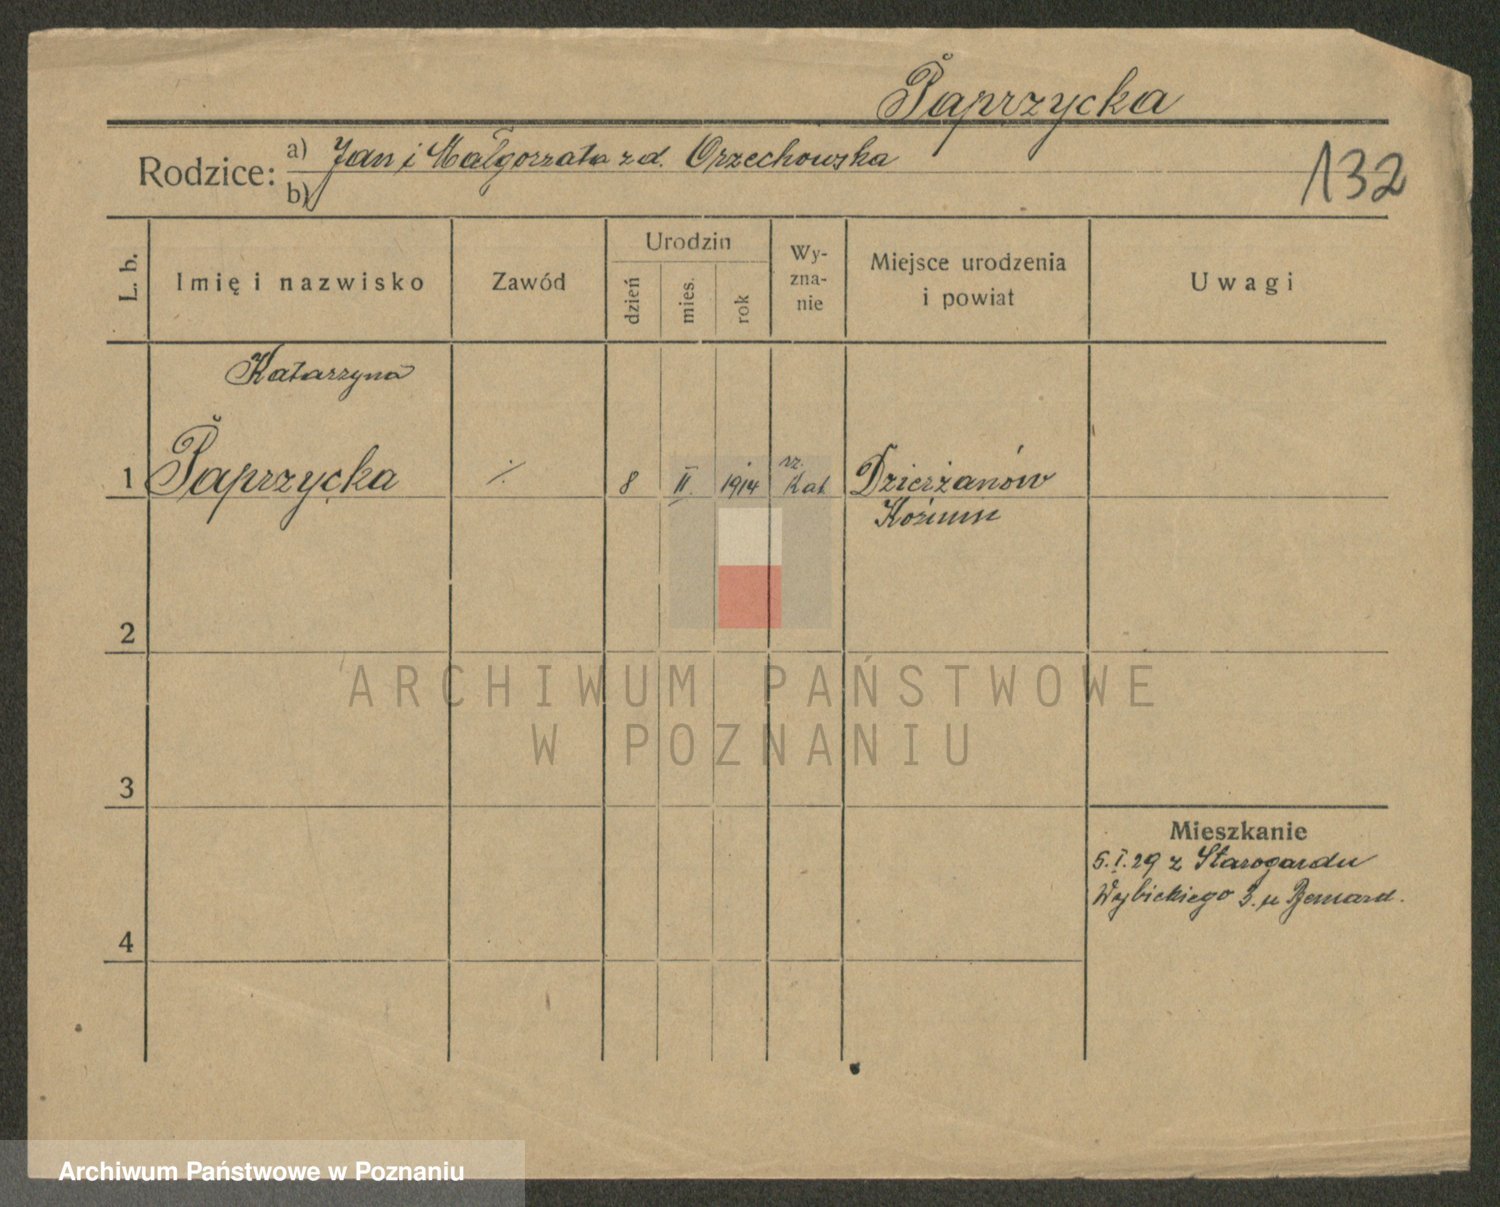 Paprzycka
Rodzice:
a) Jan i Małgorzata z d. Orzechowska
b)
132
L. b.
Imię i nazwisko
Zawód
Urodzin
dzień
mies.
rok
Wy-
zna-
nie
Miejsce urodzenia
i powiat
Uwagi
Katarzyna
1 Paprzycka ./. 8 II. 1914 rz. Kat. Dzierżanów
2
3
4
Mieszkanie
5.I.29 z Starogardu
Wybickiego 3. u Bernard.
ARCHIWUM PAŃSTWOWE
W POZNANIU
Archiwum Państwowe w Poznaniu